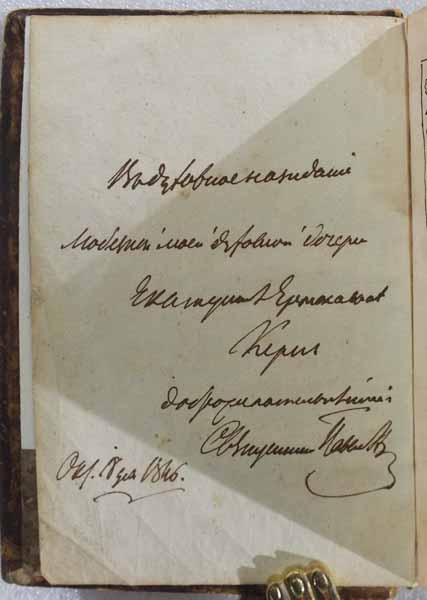 Въ духовное назиданіе
Любезной моей духовной дочери
Екатеринѣ Ермолаевнѣ
Кернъ
доброжелательнѣйшій
Священникъ
Окт. дня 1846.